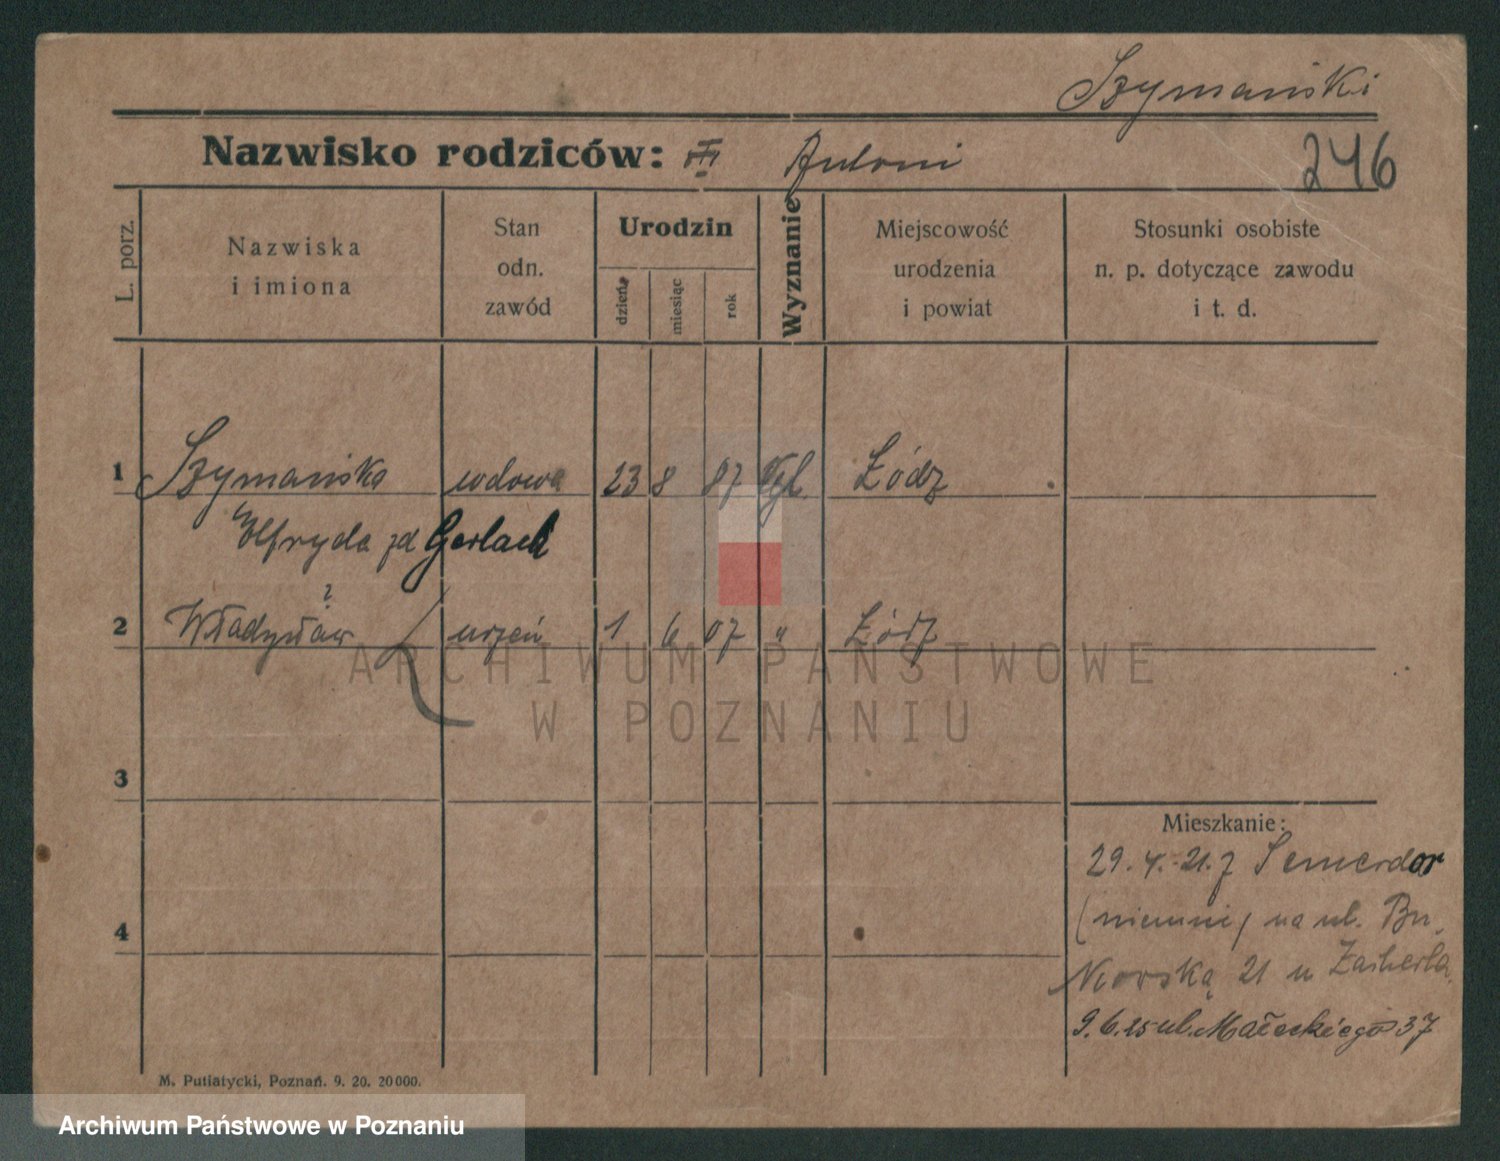 Szymański
Nazwisko rodziców: Antoni
246
L. porz.
Nazwiska i imiona
Stan odn. zawód
Urodzin
dzień
miesiąc
rok
Wyznanie
Miejscowość urodzenia i powiat
Stosunki osobiste n. p. dotyczące zawodu i t. d.
1 Szymańska wdowa 23 8 87 Łódz
Elfryda zd Gerlach
2 Władysław uczeń 1 6 07 " Łódz
3
4
Mieszkanie:
29. 4. 21. z
na ul.
21 u
9. 6. 25 ul. Małeckiego 37
M. Putiatycki, Poznań. 9. 20. 20000.
ARCHIWUM PAŃSTWOWE
W POZNANIU
Archiwum Państwowe w Poznaniu